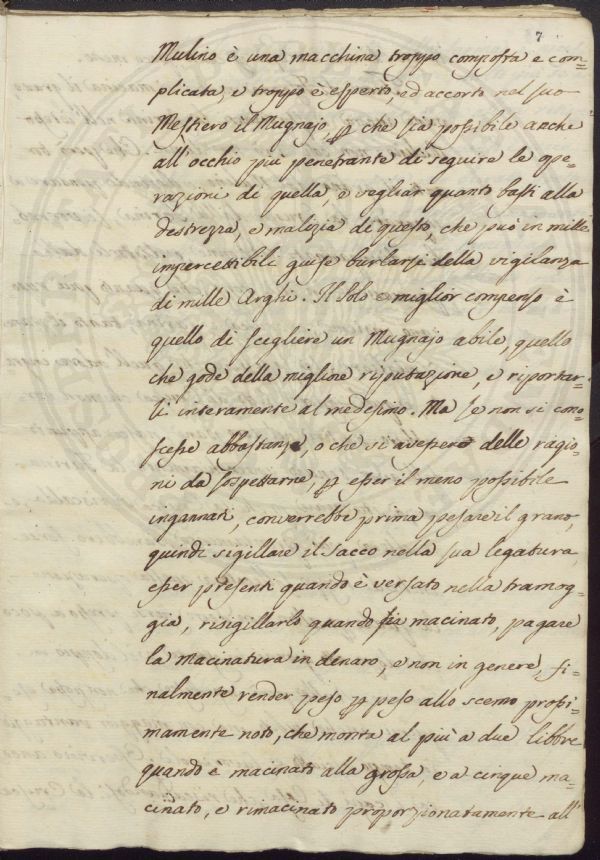 7
Mulino è una macchina troppo composta e com=
plicata, e troppo è esperto, ed accorto nel suo
Mestiero il Mugnajo, che sia possibile anche
all'occhio più penetrante di seguire le ope=
razioni di quella, e vegliar quanto basti alla
destrezza, e malizia di questo, che può in mille
impercettibili guise burlarsi della vigilanza
di mille Arghi. Il solo e miglior compenso è
quello di scegliere un Mugnajo abile, quello
che gode della migliore riputazione, e riportar=
si interamente al medesimo. Ma se non si cono=
scesse abbastanza, o che si avessero delle ragio=
ni da sospettarne, esser il meno possibile
ingannati, converrebbe prima pesare il grano,
quindi sigillare il sacco nella sua legatura,
esser presenti quando è versato nella tramog=
gia, risigillarlo quando sia macinato, pagare
la macinatura in denaro, e non in genere, fi=
nalmente render peso peso allo scemo prossi=
mamente noto, che monta al più a due libbre
quando è macinato alla grossa, e a cinque ma=
cinato, e rimacinato proporzionatamente all'